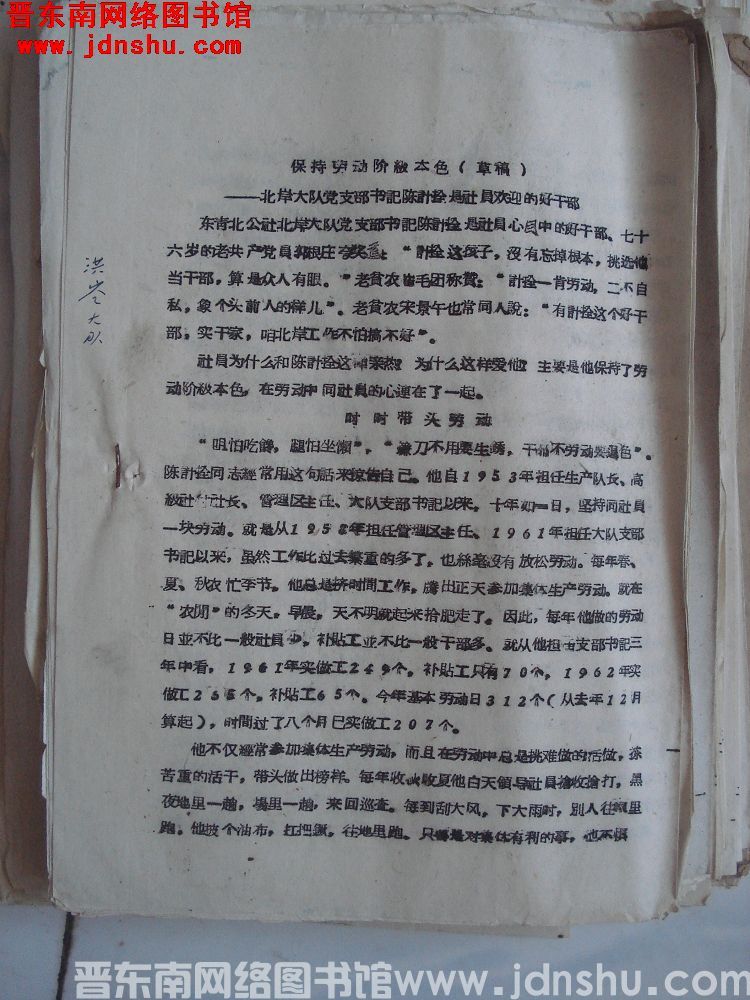 晋东南网络图书馆
www.jdnshu.com
保持劳动阶級本色(草稿)
——北岸大队党支部书記陈計拴是社員欢迎的好干部
东青北公社北岸大队党支部书記陈計拴是社員心目中的好干部、七十
六岁的老共产党員郭根庄夸奖道:“計拴这孩子,沒有忘掉根本,挑选他
当干部,算是众人有眼。”老貧农崔毛团称贊:“計拴一肯劳动,二不自
私,象个头前人的样儿”。老貧农宋景午也常同人說:“有計拴这个好干
部,实干家,咱北岸工作不怕搞不好”。
社員为什么和陈計拴这样亲热?为什么这样爱他?主要是他保持了劳
动阶級本色,在劳动中同社員的心連在了一起。
时时带头劳动
“咀怕吃饞,腿怕坐懒”,“鐮刀不用要生銹,干部不劳动要退色”。
陈計拴同志經常用这句話来警告自己。他自1953年担任生产队长、高
級社社长、管理区主任、大队支部书記以来。十年如一日,坚持同社員
一块劳动。就是从1958年担任管理区主任、1961年担任大队支部
书記以来,虽然工作比过去繁重的多了,也絲毫沒有放松劳动。每年春、
夏、秋农忙季节,他总是挤时間工作,腾出正天参加集体生产劳动。就在
“农閒”的冬天,早晨,天不明就起来拾肥走了。因此,每年他做的劳动
日並不比一般社員少,补貼工並不比一般干部多。就从他担任支部书記三
年中看,1961年实做工249个,补貼工只有70个,1962年实
做工265个,补貼工65个。今年基本劳动日312个(从去年12月
算起),时間过了八个月已实做工207个。
他不仅經常参加集体生产劳动,而且在劳动中总是挑难做的活做,拣
苦重的活干,带头做出榜样。每年收秋收夏他白天領导社員搶收搶打,黑
夜地里一趟,場里一趟,来回巡查。每到刮大风,下大雨时,别人往家里
跑。他披个油布,扛把鍬,往地里跑。只要是对集体有利的事,他不惧
洪岺大队
晋东南网络图书馆www.jdnshu.com